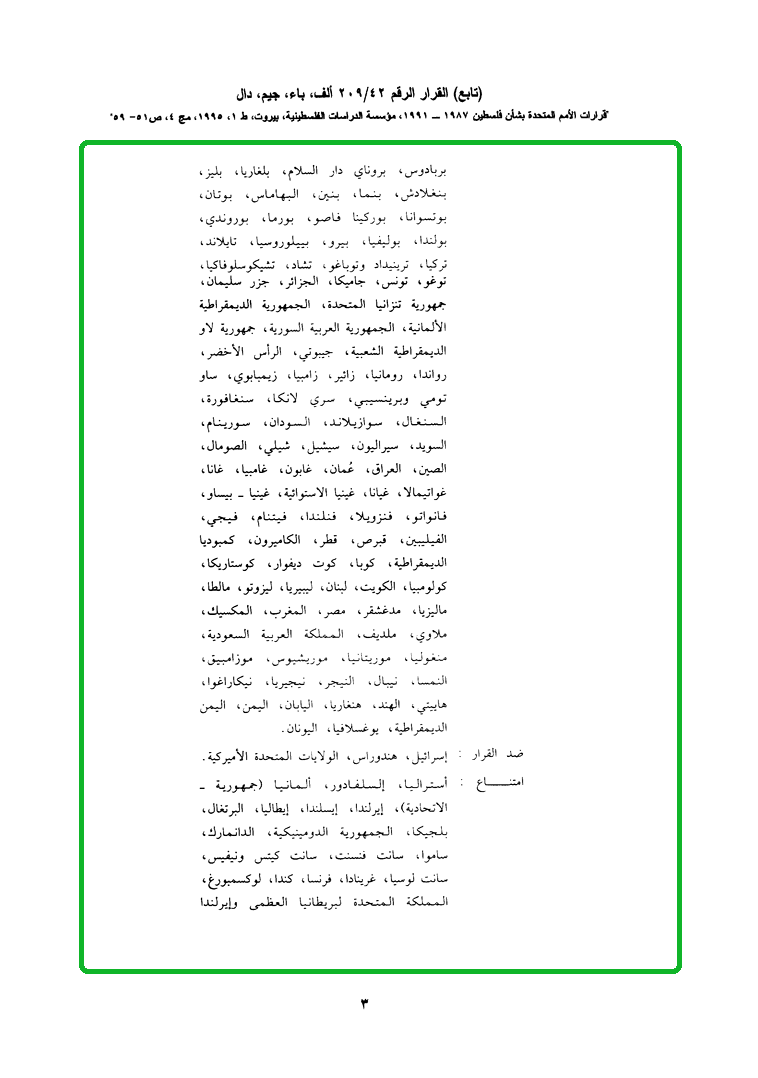 (تابع) القرار الرقم ٢٠٩/٤٢ ألف، باء، جيم، دال
"قرارات الأمم المتحدة بشأن فلسطين ١٩٨٧ ــ ١٩٩١، مؤسسة الدراسات الفلسطينية، بيروت، ط ١، ١٩٩٥، مج ٤، ص٥١- ٥٩"
بربادوس، بروناي دار السلام، بلغاريا، بليز،
بنغلادش، بنما، بنين، البهاماس، بوتان،
بوتسوانا، بوركينا فاصو، بورما، بوروندي،
بولندا، بوليفيا، بيرو، بييلوروسيا، تايلاند،
تركيا، ترينيداد وتوباغو، تشاد، تشيكوسلوفاكيا،
توغو، تونس، جاميكا، الجزائر، جزر سليمان،
جمهورية تنزانيا المتحدة، الجمهورية الديمقراطية
الألمانية، الجمهورية العربية السورية، جمهورية لاو
الديمقراطية الشعبية، جيبوتي، الرأس الأخضر،
رواندا، رومانيا، زائير، زامبيا، زيمبابوي، ساو
تومي وبرينسيبي، سري لانكا، سنغافورة،
السنغال، سوازيلاند، السودان، سورينام،
السويد، سيراليون، سيشيل، شيلي، الصومال،
الصين، العراق، عُمان، غابون، غامبيا، غانا،
غواتيمالا، غيانا، غينيا الاستوائية، غينيا ـ بيساو،
فانواتو، فنزويلا، فنلندا، فيتنام، فيجي،
الفيليبين، قبرص، قطر، الكاميرون، كمبوديا
الديمقراطية، كوبا، كوت ديفوار، كوستاريكا،
كولومبيا، الكويت، لبنان، ليبيريا، ليزوتو، مالطا،
ماليزيا، مدغشقر، مصر، المغرب، المكسيك،
ملاوي، ملديف، المملكة العربية السعودية،
منغوليا، موريتانيا، موريشيوس، موزامبيق،
النمسا، نيبال، النيجر، نيجيريا، نيكاراغوا،
هاييتي، الهند، هنغاريا، اليابان، اليمن، اليمن
الديمقراطية، يوغسلافيا، اليونان.
ضد القرار : إسرائيل، هندوراس، الولايات المتحدة الأميركية.
امتنـــــاع : أستراليا، إلسلفادور، ألمانيا (جمهورية ـ
الاتحادية)، إيرلندا، إيسلندا، إيطاليا، البرتغال،
بلجيكا، الجمهورية الدومينيكية، الدانمارك،
ساموا، سانت فنسنت، سانت كيتس ونيفيس،
سانت لوسيا، غرينادا، فرنسا، كندا، لوكسمبورغ،
المملكة المتحدة لبريطانيا العظمى وإيرلندا
٣